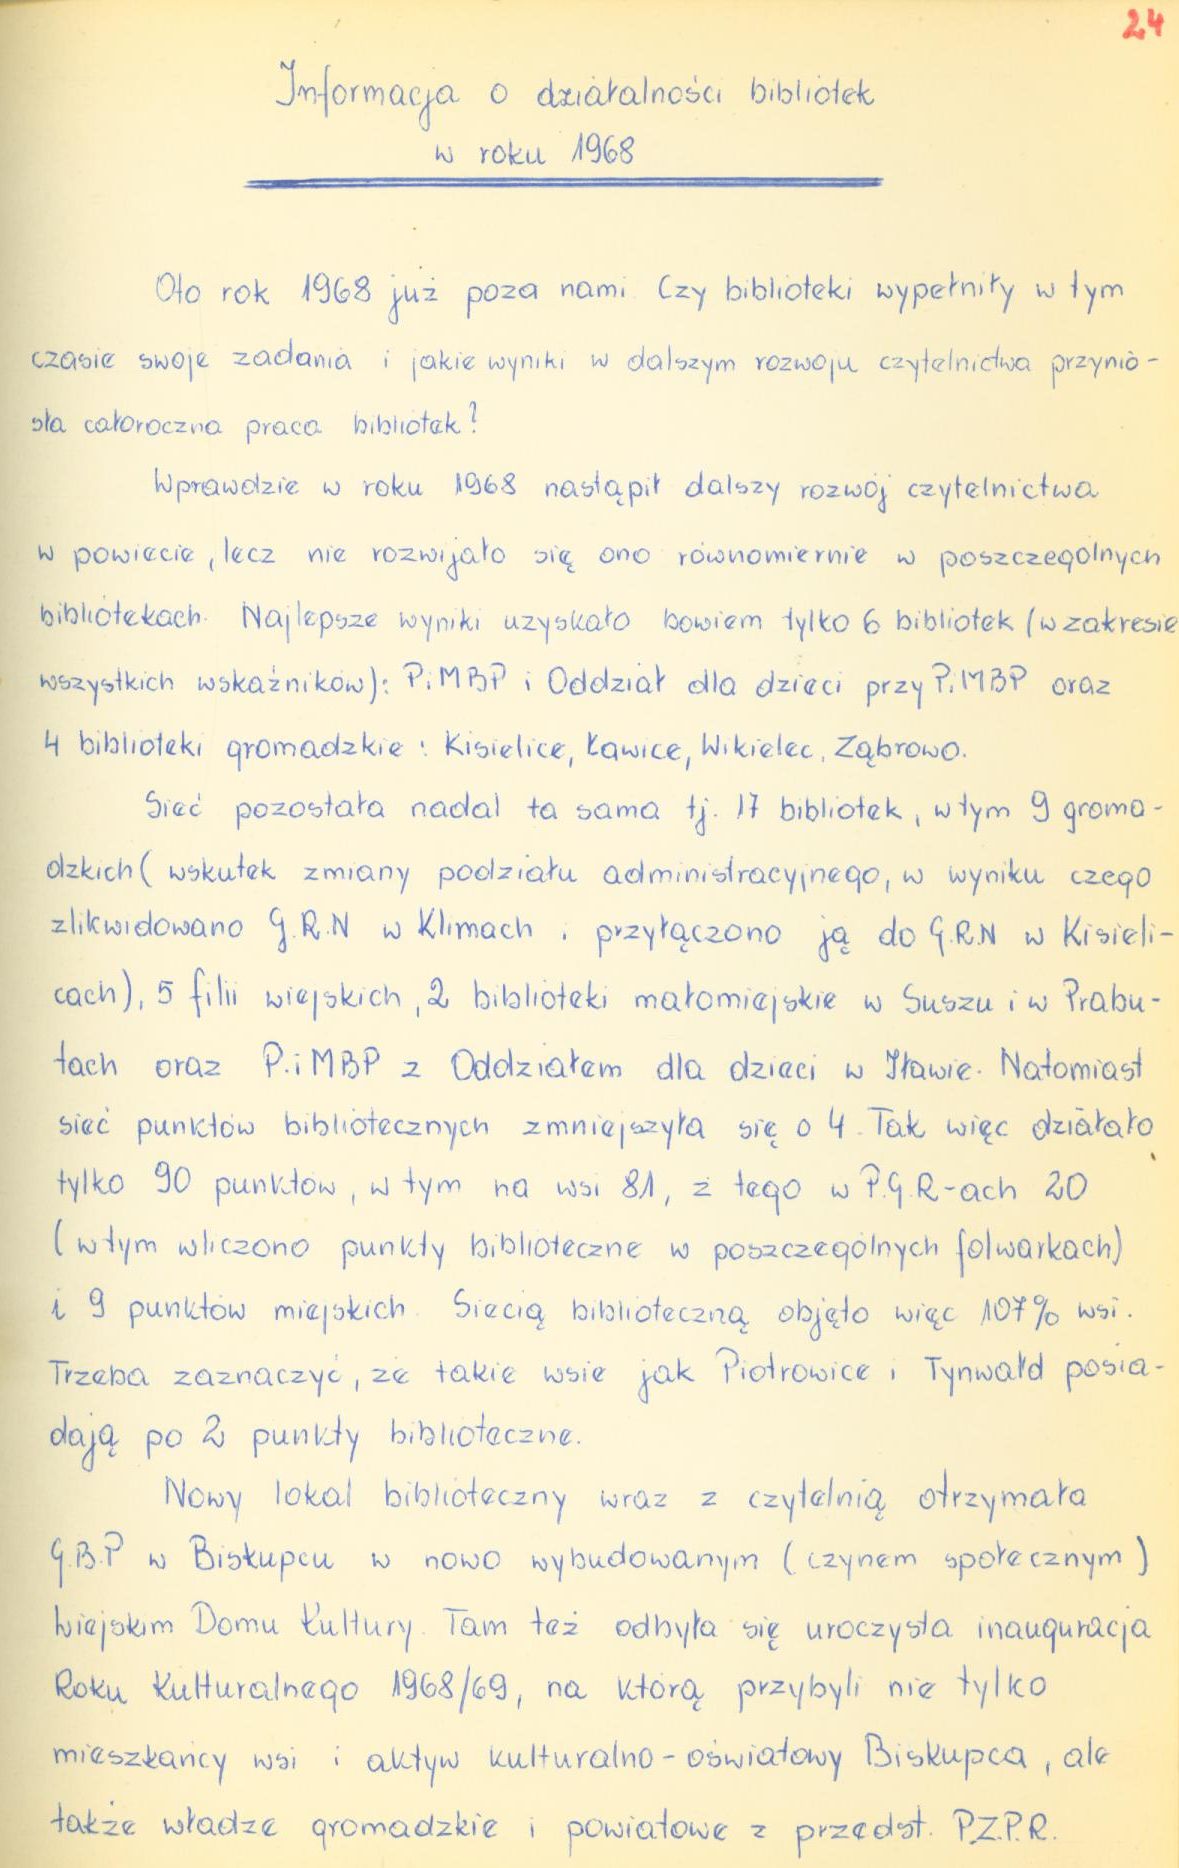 24
Informacja o działalności bibliotek
w roku 1968
Oto rok 1968 już poza nami. Czy biblioteki wypełniły w tym
czasie swoje zadania i jakie wyniki w dalszym rozwoju czytelnictwa przynio-
sła całoroczna praca bibliotek?
Wprawdzie w roku 1968 nastąpił dalszy rozwój czytelnictwa
w powiecie, lecz nie rozwijało się ono równomiernie w poszczególnych
bibliotekach. Najlepsze wyniki uzyskało bowiem tylko 6 bibliotek (w zakresie
wszystkich wskaźników): PiMBP i Oddział dla dzieci przy PiMBP oraz
4 biblioteki gromadzkie: Kisielice, Ławice, Wikielec, Ząbrowo.
Sieć pozostała nadal ta sama tj. 17 bibliotek, w tym 9 groma-
dzkich (wskutek zmiany podziału administracyjnego, w wyniku czego
zlikwidowano G.R.N w Klimach i przyłączono ją do G.R.N w Kisieli-
cach), 5 filii wiejskich, 2 biblioteki małomiejskie w Suszu i w Prabu-
tach oraz P.iMBP z Oddziałem dla dzieci w Iławie. Natomiast
sieć punktów bibliotecznych zmniejszyła się o 4. Tak więc działało
tylko 90 punktów, w tym na wsi 81, z tego w P.G.R-ach 20
(w tym wliczono punkty biblioteczne w poszczególnych folwarkach)
i 9 punktów miejskich. Siecią biblioteczną objęto więc 107% wsi.
Trzeba zaznaczyć, że takie wsie jak Piotrowice i Tynwałd posia-
dają po 2 punkty biblioteczne.
Nowy lokal biblioteczny wraz z czytelnią otrzymała
G.B.P w Biskupcu w nowo wybudowanym (czynem społecznym)
Wiejskim Domu Kultury. Tam też odbyła się uroczysta inauguracja
Roku Kulturalnego 1968/69, na którą przybyli nie tylko
mieszkańcy wsi i aktyw kulturalno-oświatowy Biskupca, ale
także władze gromadzkie i powiatowe z przedst. P.Z.P.R.